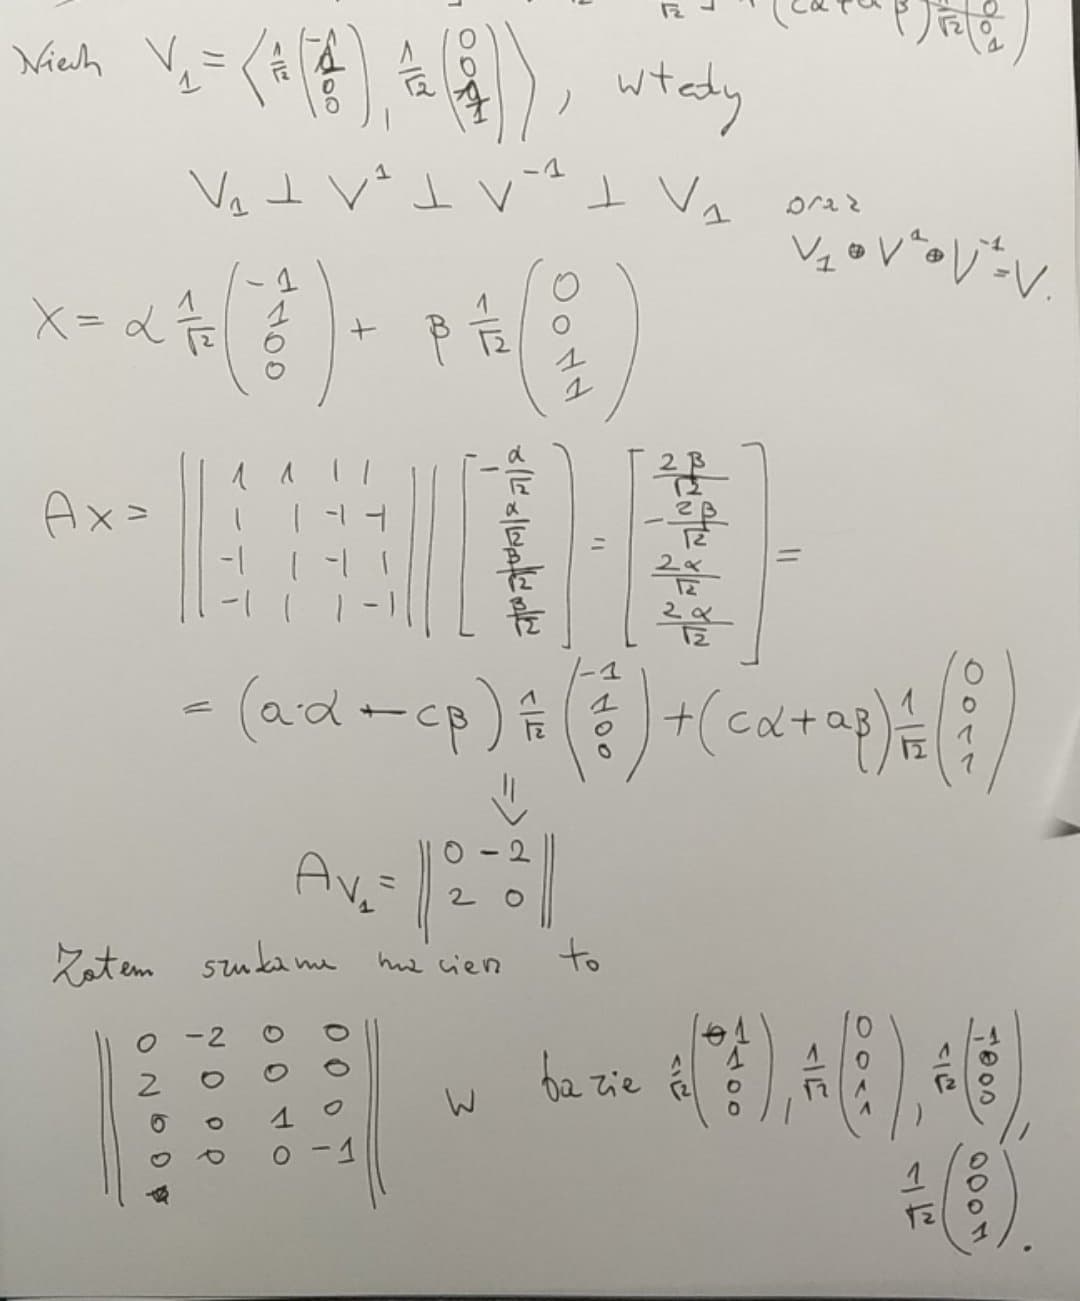 (cα+a β) 1/√2 (0 0 1)
Niech V₁ = ⟨ 1/√2 (-1 1 0 0), 1/√2 (0 0 1 1) ⟩, wtedy
V₁ ⊥ V¹ ⊥ V⁻¹ ⊥ V₁ oraz
V₁ ⊕ V¹ ⊕ V⁻¹ = V.
X = α 1/√2 (-1 1 0 0) + β 1/√2 (0 0 1 1)
Ax = || 1 1 1 1 ; 1 1 -1 -1 ; -1 1 -1 1 ; -1 1 1 -1 || [ -α/√2 ; α/√2 ; β/√2 ; β/√2 ] = [ 2β/√2 ; -2β/√2 ; 2α/√2 ; 2α/√2 ] =
= (a·α - cβ) 1/√2 (-1 1 0 0) + (cα + aβ) 1/√2 (0 0 1 1)
⇓
A_V₁ = || 0 -2 ; 2 0 ||
Zatem szukana macierz to
|| 0 -2 0 0 ; 2 0 0 0 ; 0 0 1 0 ; 0 0 0 -1 || w bazie 1/√2 (1 1 0 0), 1/√2 (0 0 1 1), 1/√2 (-1 0 0 0),
1/√2 (0 0 0 1).